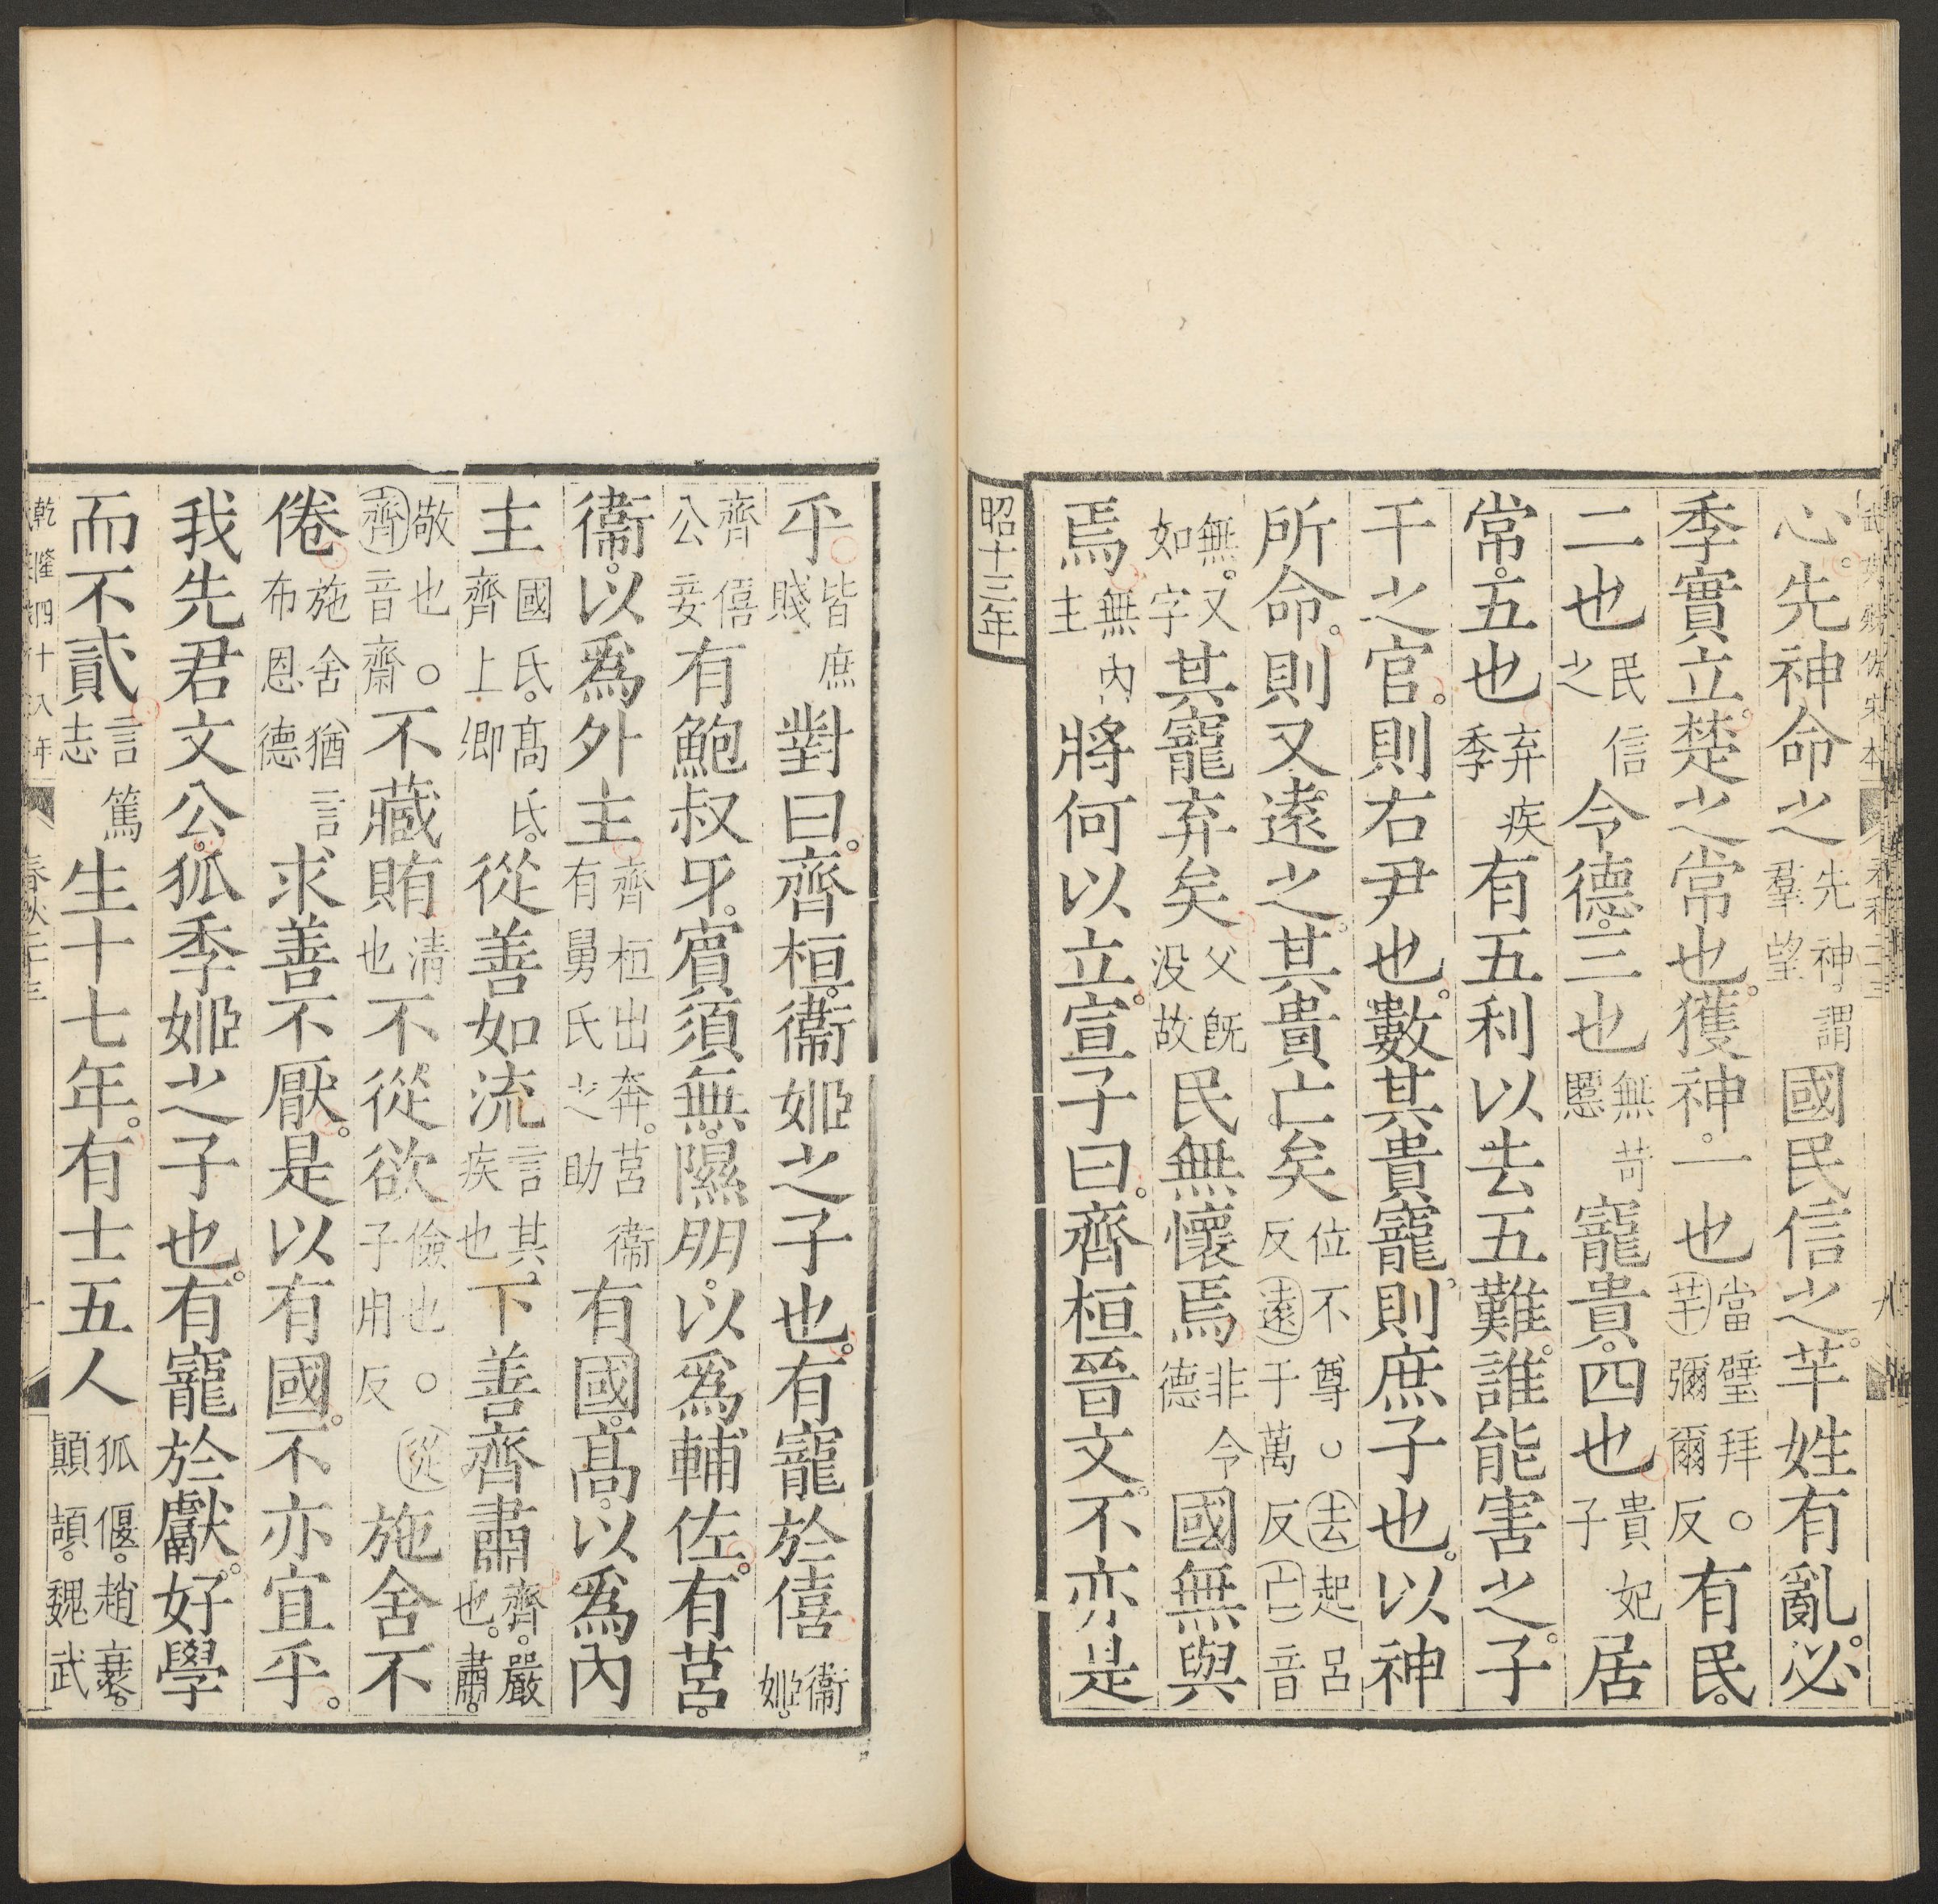 武英殿仿宋本 春秋二十三 九
心。先神命之先神。謂羣望國民信之。芈姓有亂。必
季實立。楚之常也。獲神。一也當璧拜。○芈彌爾反有民。
二也民信之令德。三也無苛慝寵貴。四也貴妃子居
常。五也弃疾季有五利以去五難。誰能害之。子
干之官。則右尹也。數其貴寵。則庶子也。以神
所命。則又遠之。其貴亡矣位不尊。○去起呂反遠于萬反亡音
無。又如字其寵弃矣父既没故民無懷焉非令德國無與
焉無內主將何以立。宣子曰。齊桓晉文。不亦是
昭十三年
乎。皆庶賤對曰。齊桓。衞姬之子也。有寵於僖衞姬。
齊僖公妾有鮑叔牙。賔須無。隰朋。以爲輔佐。有莒。
衞。以爲外主齊桓出奔。莒衞有舅氏之助有國。髙。以爲內
主國氏。髙氏。齊上卿從善如流言其。疾也下善齊肅齊。嚴也。肅。
敬也。○齊音齋不藏賄清也不從欲儉也。○從子用反施舍不
倦施舍猶言布恩德求善不厭。是以有國。不亦宜乎。
我先君文公。狐季姬之子也。有寵於獻。好學
而不貳言篤志生十七年。有士五人狐偃。趙衰。顛頡。魏武
乾隆四十八年 春秋二十三 十